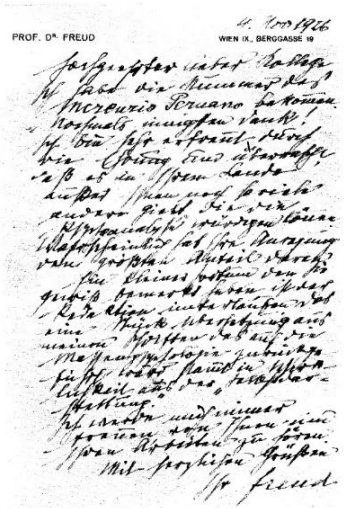 4. Nov 1926
PROF. DR. FREUD
WIEN IX., BERGGASSE 19
Hochgeehrter lieber Kollege
Ich habe die Nummer des
Mercurio Peruano bekommen.
Nochmals innigsten Dank!
Ich bin sehr erfreut durch
die Ehrung und überrascht
daß es in Ihrem Lande
außer Ihnen noch so viele
andere giebt die die
Psychoanalyse würdigen können
Wahrscheinlich hat Ihre Anregung
den größten Anteil daran.
Ein kleiner Irrtum den Sie
gewiß bemerkt haben ist der
Redaktion unterlaufen das
ein Stück Übersetzung aus
meinen Schriften das auf die
Massenpsychologie
wird stammt in Wirk-
lichkeit aus der
Ich werde mich immer
freuen von Ihnen und
Ihren Arbeiten zu hören.
Mit herzlichen Grüßen
Ihr Freud